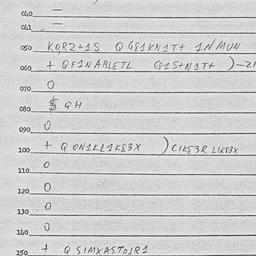 040 —
041 —
050 KORZ+1S QG81KN1T+ 1NMUN
060 + QF1NABLETL G81S+N1T+ )-21
070 0
080 $ QH
090 0
100 + QON1KL1K83X )C1K83R L1K83X
110 0
120 0
130 0
140 0
150 + QSIMXASTOJR1